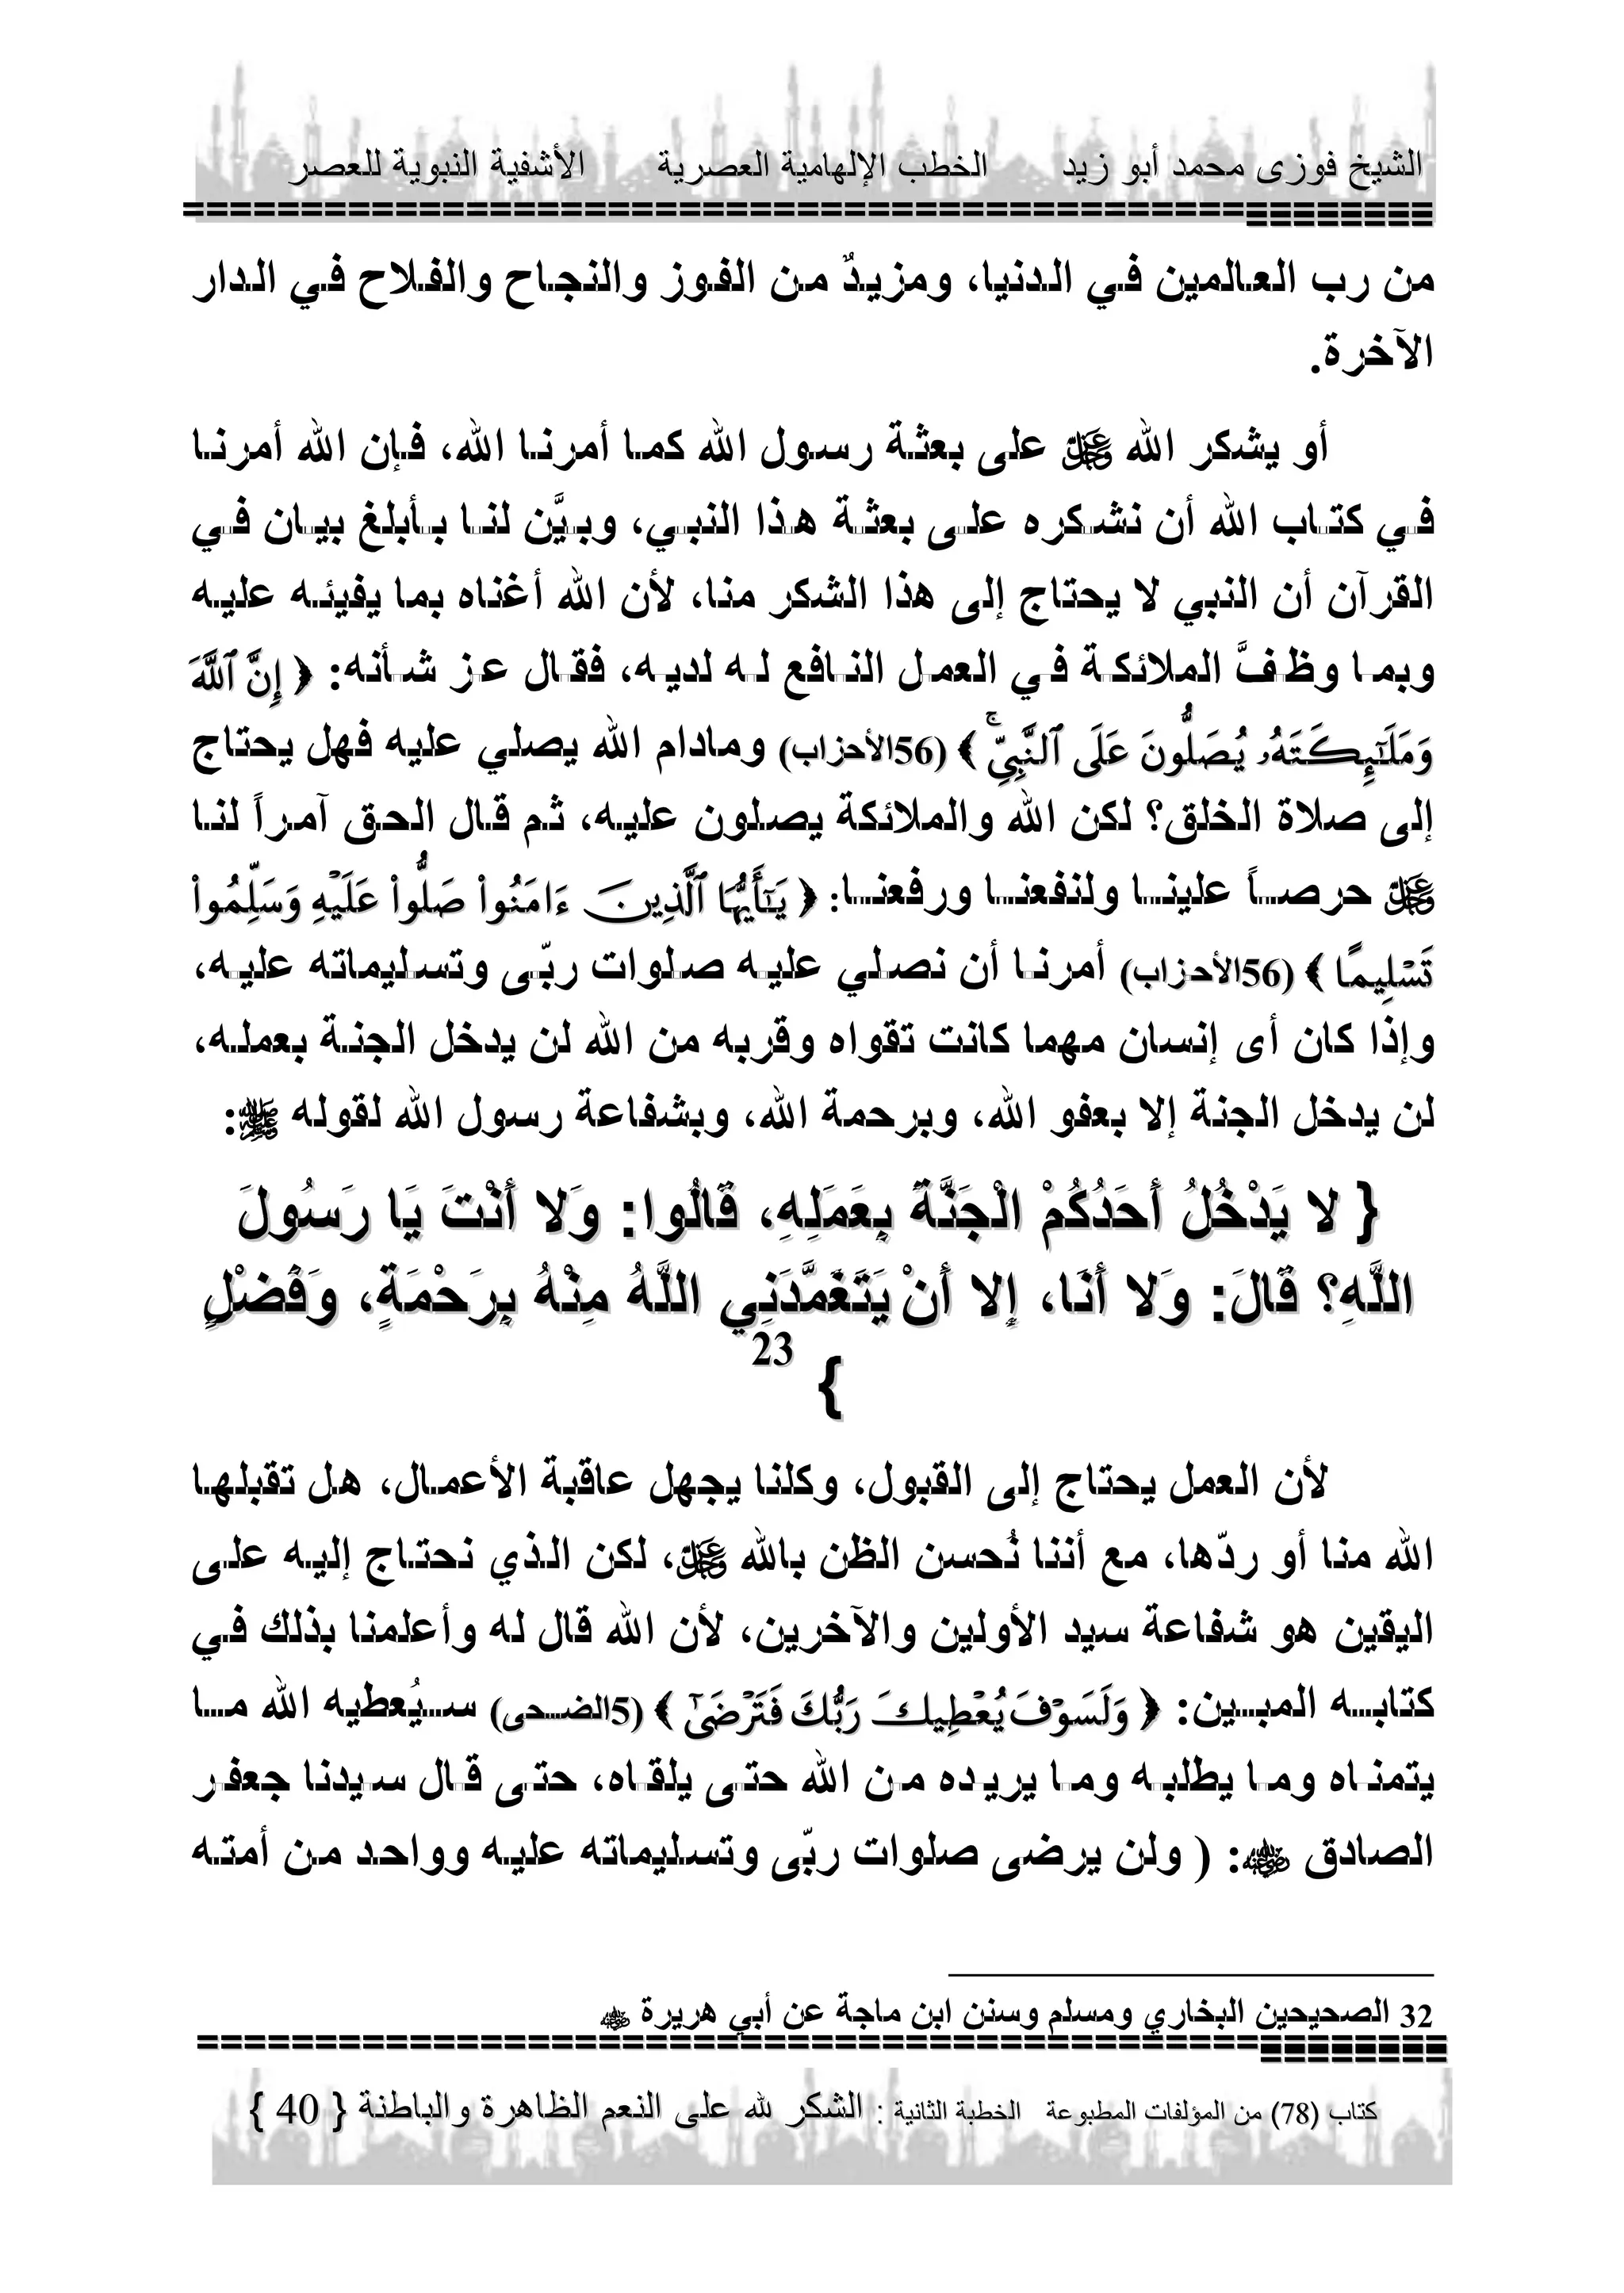 الشيخ فوزى محمد أبو زيد الخطب الإلهامية العصرية الأشفية النبوية للعصر
من رب العالمين في الدنيا، ومزيدٌ من الفوز والنجاح والفلاح في الدار
الآخرة.
أو يشكر الله عز وجل على بعثة رسول الله كما أمرنا الله، فإن الله أمرنا
في كتاب الله أن نشكره على بعثة هذا النبي، وبيَّن لنا بأبلغ بيان في
القرآن أن النبي لا يحتاج إلى هذا الشكر منا، لأن الله أغناه بما يفيئه عليه
وبما وظفَّ الملائكة في العمل النافع له لديه، فقال عز شأنه: ﴿ إِنَّ ٱللَّهَ
وَمَلَـٰٓئِكَتَهُۥ يُصَلُّونَ عَلَى ٱلنَّبِىِّ ۚ ﴾ (56الأحزاب) ومادام الله يصلي عليه فهل يحتاج
إلى صلاة الخلق؟ لكن الله والملائكة يصلون عليه، ثم قال الحق آمراً لنا
عز وجل حرصاً علينا ولنفعنا ورفعنا: ﴿ يَـٰٓأَيُّهَا ٱلَّذِينَ ءَامَنُوا۟ صَلُّوا۟ عَلَيْهِ وَسَلِّمُوا۟
تَسْلِيمًا ﴾ (56الأحزاب) أمرنا أن نصلي عليه صلوات ربّى وتسليماته عليه،
وإذا كان أى إنسان مهما كانت تقواه وقربه من الله لن يدخل الجنة بعمله،
لن يدخل الجنة إلا بعفو الله، وبرحمة الله، وبشفاعة رسول الله لقوله ﷺ:
{ لا يَدْخُلُ أَحَدُكُمْ الْجَنَّةَ بِعَمَلِهِ، قَالُوا: وَلا أَنْتَ يَا رَسُولَ
اللَّهِ؟ قَالَ: وَلا أَنَا، إِلا أَنْ يَتَغَمَّدَنِي اللَّهُ مِنْهُ بِرَحْمَةٍ، وَفَضْلٍ
} 23
لأن العمل يحتاج إلى القبول، وكلنا يجهل عاقبة الأعمال، هل تقبلها
الله منا أو ردّها، مع أننا نُحسن الظن بالله عز وجل، لكن الذي نحتاج إليه على
اليقين هو شفاعة سيد الأولين والآخرين، لأن الله قال له وأعلمنا بذلك في
كتابه المبين: ﴿ وَلَسَوْفَ يُعْطِيكَ رَبُّكَ فَتَرْضَىٰٓ ﴾ (5الضحى) سيُعطيه الله ما
يتمناه وما يطلبه وما يريده من الله حتى يلقاه، حتى قال سيدنا جعفر
الصادق رضي الله عنه: ( ولن يرضى صلوات ربّى وتسليماته عليه وواحد من أمته
32 الصحيحين البخاري ومسلم وسنن ابن ماجة عن أبي هريرة رضي الله عنه
كتاب (78) من المؤلفات المطبوعة الخطبة الثانية : الشكر لله على النعم الظاهرة والباطنة { 40 }